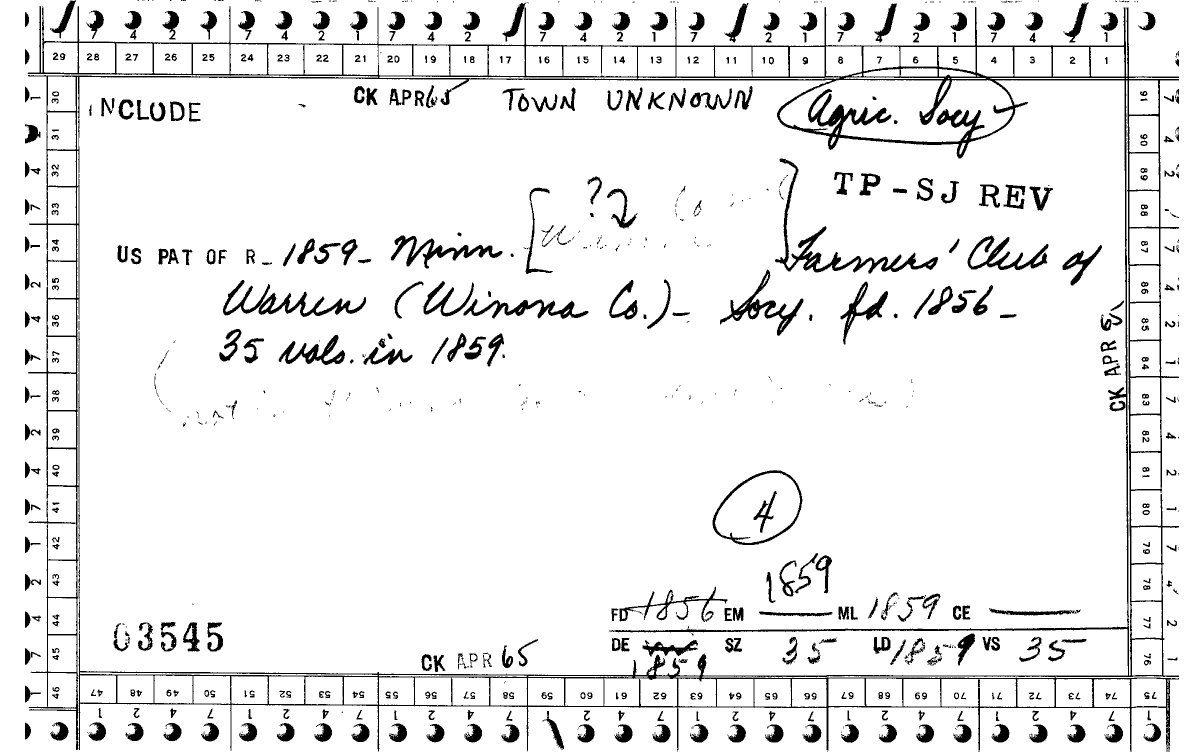 7 4 2 1 7 4 2 1 7 4 2 1 7 4 2 1 7 4 2 1 7 4 2 1
29 28 27 26 25 24 23 22 21 20 19 18 17 16 15 14 13 12 11 10 9 8 7 6 5 4 3 2 1
INCLUDE CK APR 65 TOWN UNKNOWN Agric. Socy
TP-SJ REV
? Co
US PAT OF R - 1859 - Minn. [Winona] Farmers' Club of
Warren (Winona Co.) - Socy. fd. 1856 -
35 vols. in 1859.
(not in
CK APR 65
4
1859
FD 1856 EM ML 1859 CE
DE SZ 35 LD 1859 VS 35
1859
03545
CK APR 65
30 31 32 33 34 35 36 37 38 39 40 41 42 43 44 45 46
91 90 89 88 87 86 85 84 83 82 81 80 79 78 77 76 75
47 48 49 50 51 52 53 54 55 56 57 58 59 60 61 62 63 64 65 66 67 68 69 70 71 72 73 74 75
1 2 4 7 1 2 4 7 1 2 4 7 1 2 4 7 1 2 4 7 1 2 4 7 1 2 4 7